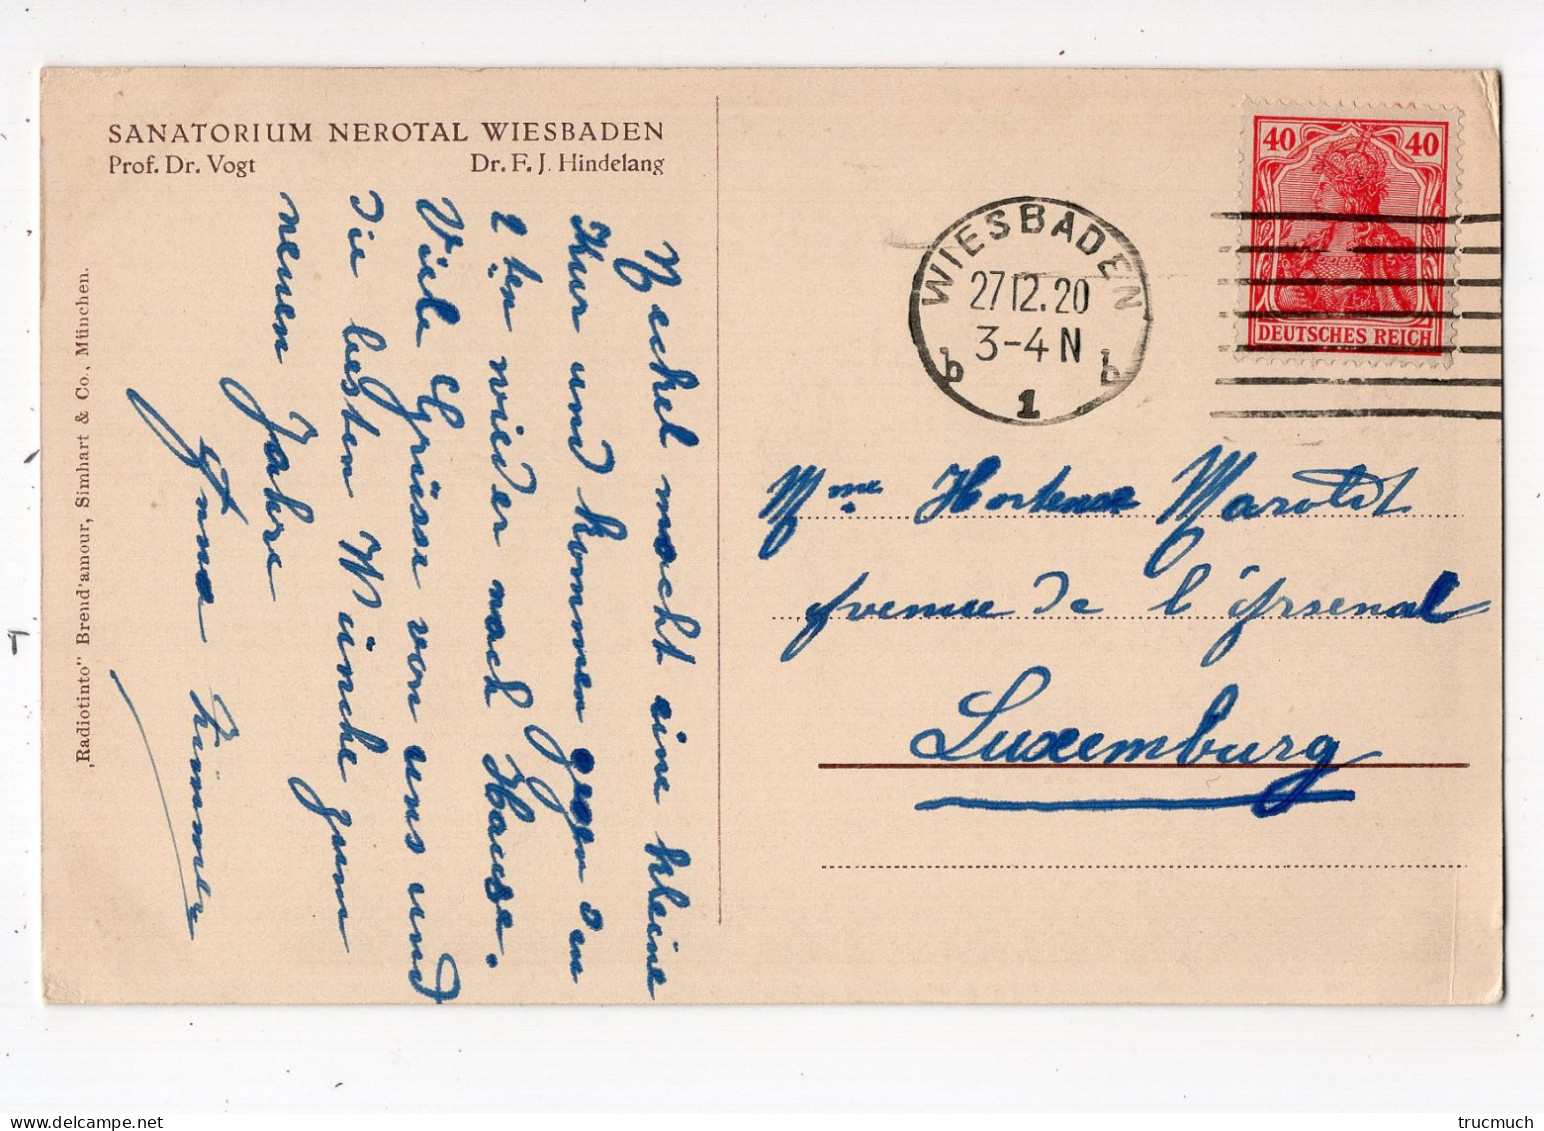 SANATORIUM NEROTAL WIESBADEN
Prof. Dr. Vogt Dr. F. J. Hindelang
macht eine kleine
Kur und kommen gegen den
2ten wieder nach Hause.
Viele Grüsse von uns und
die besten Wünsche zum
neuen Jahre
„Radiotinto” Brend'amour, Simhart & Co., München.
WIESBADEN
27 12. 20
3-4 N
b 1 b
40 40
DEUTSCHES REICH
Mme Hortense
Avenue de l'Arsenal
Luxemburg
trucmuch